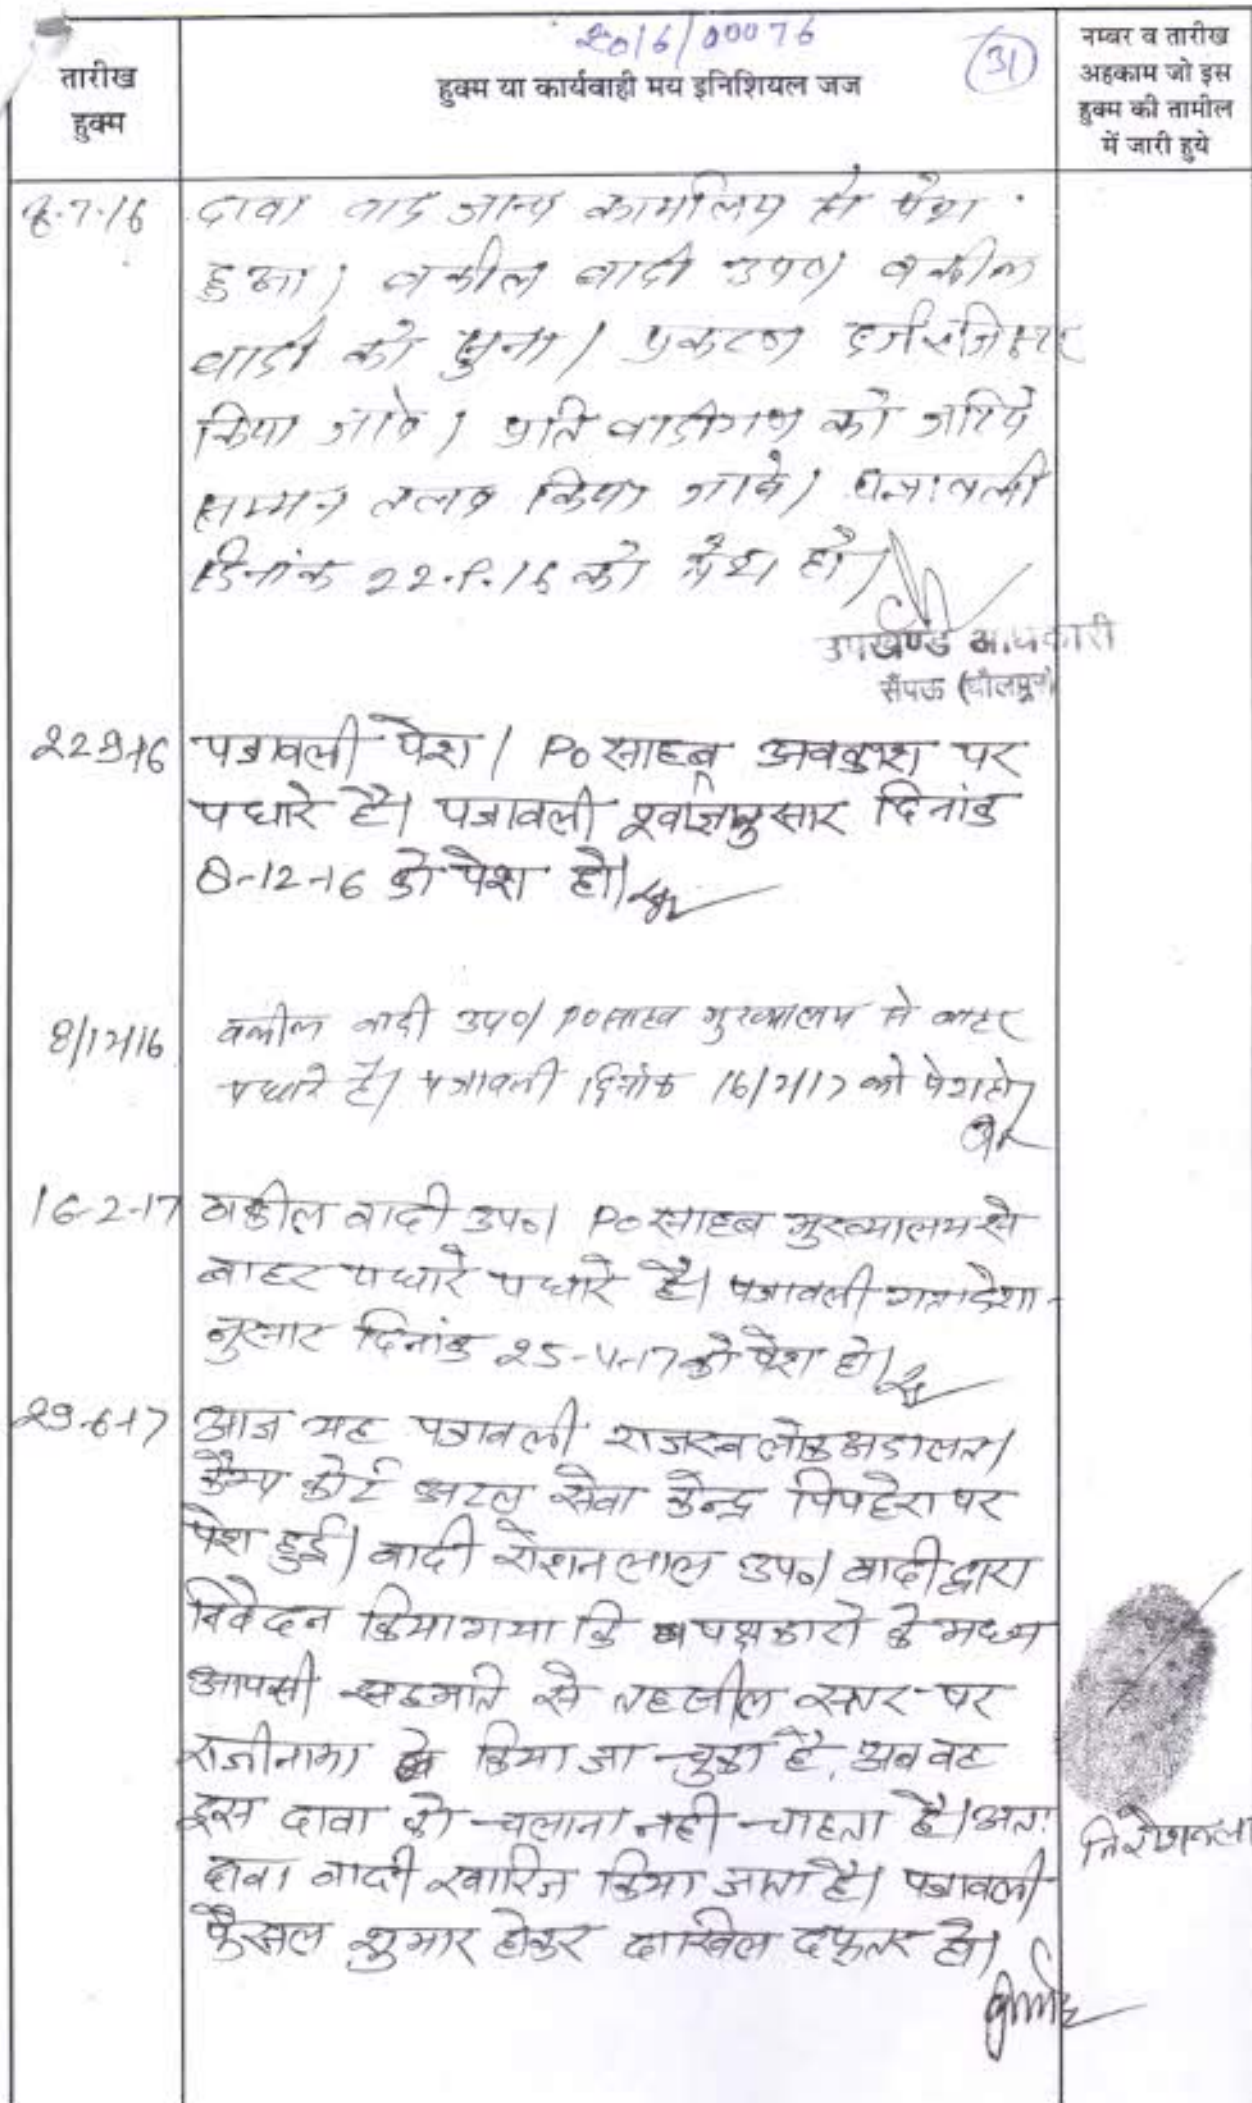 2016/00076
(31)
तारीख
हुक्म
हुक्म या कार्यवाही मय इनिशियल जज
नम्बर व तारीख
अहकाम जो इस
हुक्म की तामील
में जारी हुये
8-7-16 दावा वाद जान्च कार्यालय से पेश
हुआ। वकील वादी उप०। वकील
वादी को सुना। प्रकरण दर्ज रजिस्टर
किया जावे। प्रतिवादीगण को जरिये
सम्मन तलब किया जावे। पत्रावली
दिनांक 22.9.16 को पेश हो।
उपखण्ड अधिकारी
सैंपऊ (धौलपुर)
22-9-16 पत्रावली पेश। Po साहब अवकाश पर
पधारे है। पत्रावली पूर्वाज्ञानुसार दिनांक
8-12-16 को पेश हो।
8/12/16 वकील वादी उप०। PO साहब मुख्यालय से बाहर
पधारे है। पत्रावली दिनांक 16/2/17 को पेश हो।
16-2-17 वकील वादी उप०। Po साहब मुख्यालय से
बाहर पधारे पधारे है। पत्रावली गतादेशा-
नुसार दिनांक 25-4-17 को पेश हो।
29-6-17 आज यह पत्रावली राजस्व लोक अदालत।
कैम्प कोर्ट अटल सेवा केन्द्र पिपहेरा पर
पेश हुई। वादी रोशनलाल उप०। वादी द्वारा
निवेदन किया गया कि पक्षकारो के मध्य
आपसी सहमति से तहसील स्तर पर
राजीनामा किया जा चुका है, अब वह
इस दावा को चलाना नही चाहता है। अतः
दावा वादी खारिज किया जाता है। पत्रावली
फैसल शुमार होकर दाखिल दफ्तर हो।